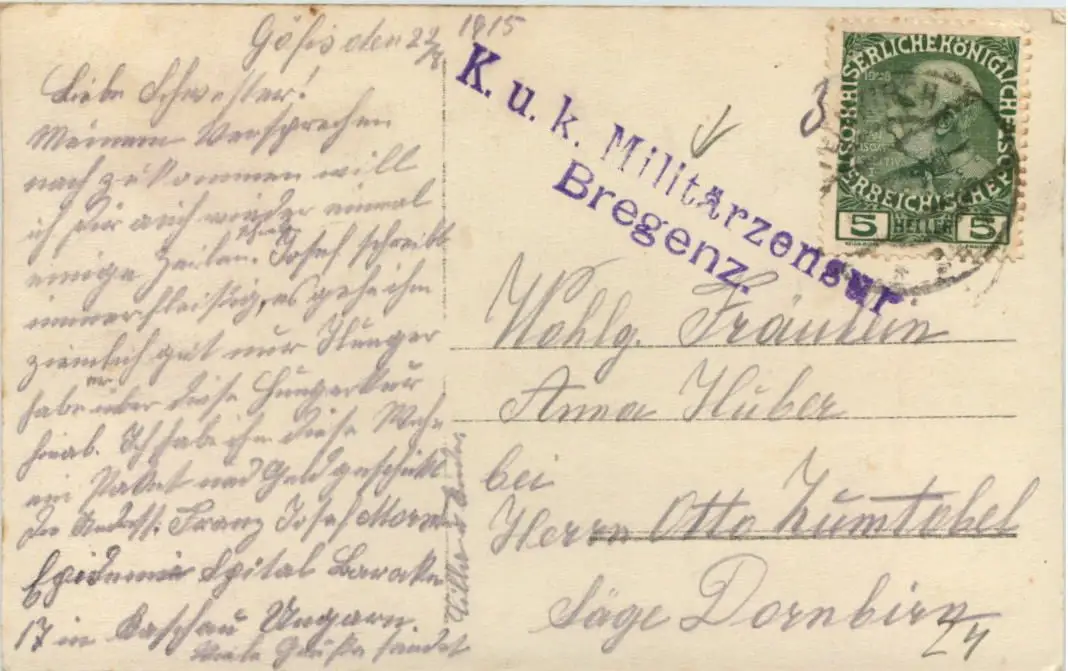 Göfis den 22/8 1915
Liebe Schwester!
Meinem Versprechen
nachzukommen will
ich dir auch wieder einmal
einige Zeilen. Josef schreibt
immer fleißig, es gehe ihm
ziemlich gut nur Hunger
habe er über diese Hungerkur
hinab. Ich habe ihm diese Woche
ein Paket und Geld geschickt
die Franz Josef
Epidemie Spital Baracke
17 in Kaschau Ungarn
Viele Grüße sendet
K. u. k. Militärzensur.
Bregenz.
3
KAISERLICHE KÖNIGLICHE ÖSTERREICHISCHE POST
1908
5 HELLER 5
Wohlg. Fräulein
Anna Huber
bei
Herrn Otto Zumtobel
Säge Dornbirn
24